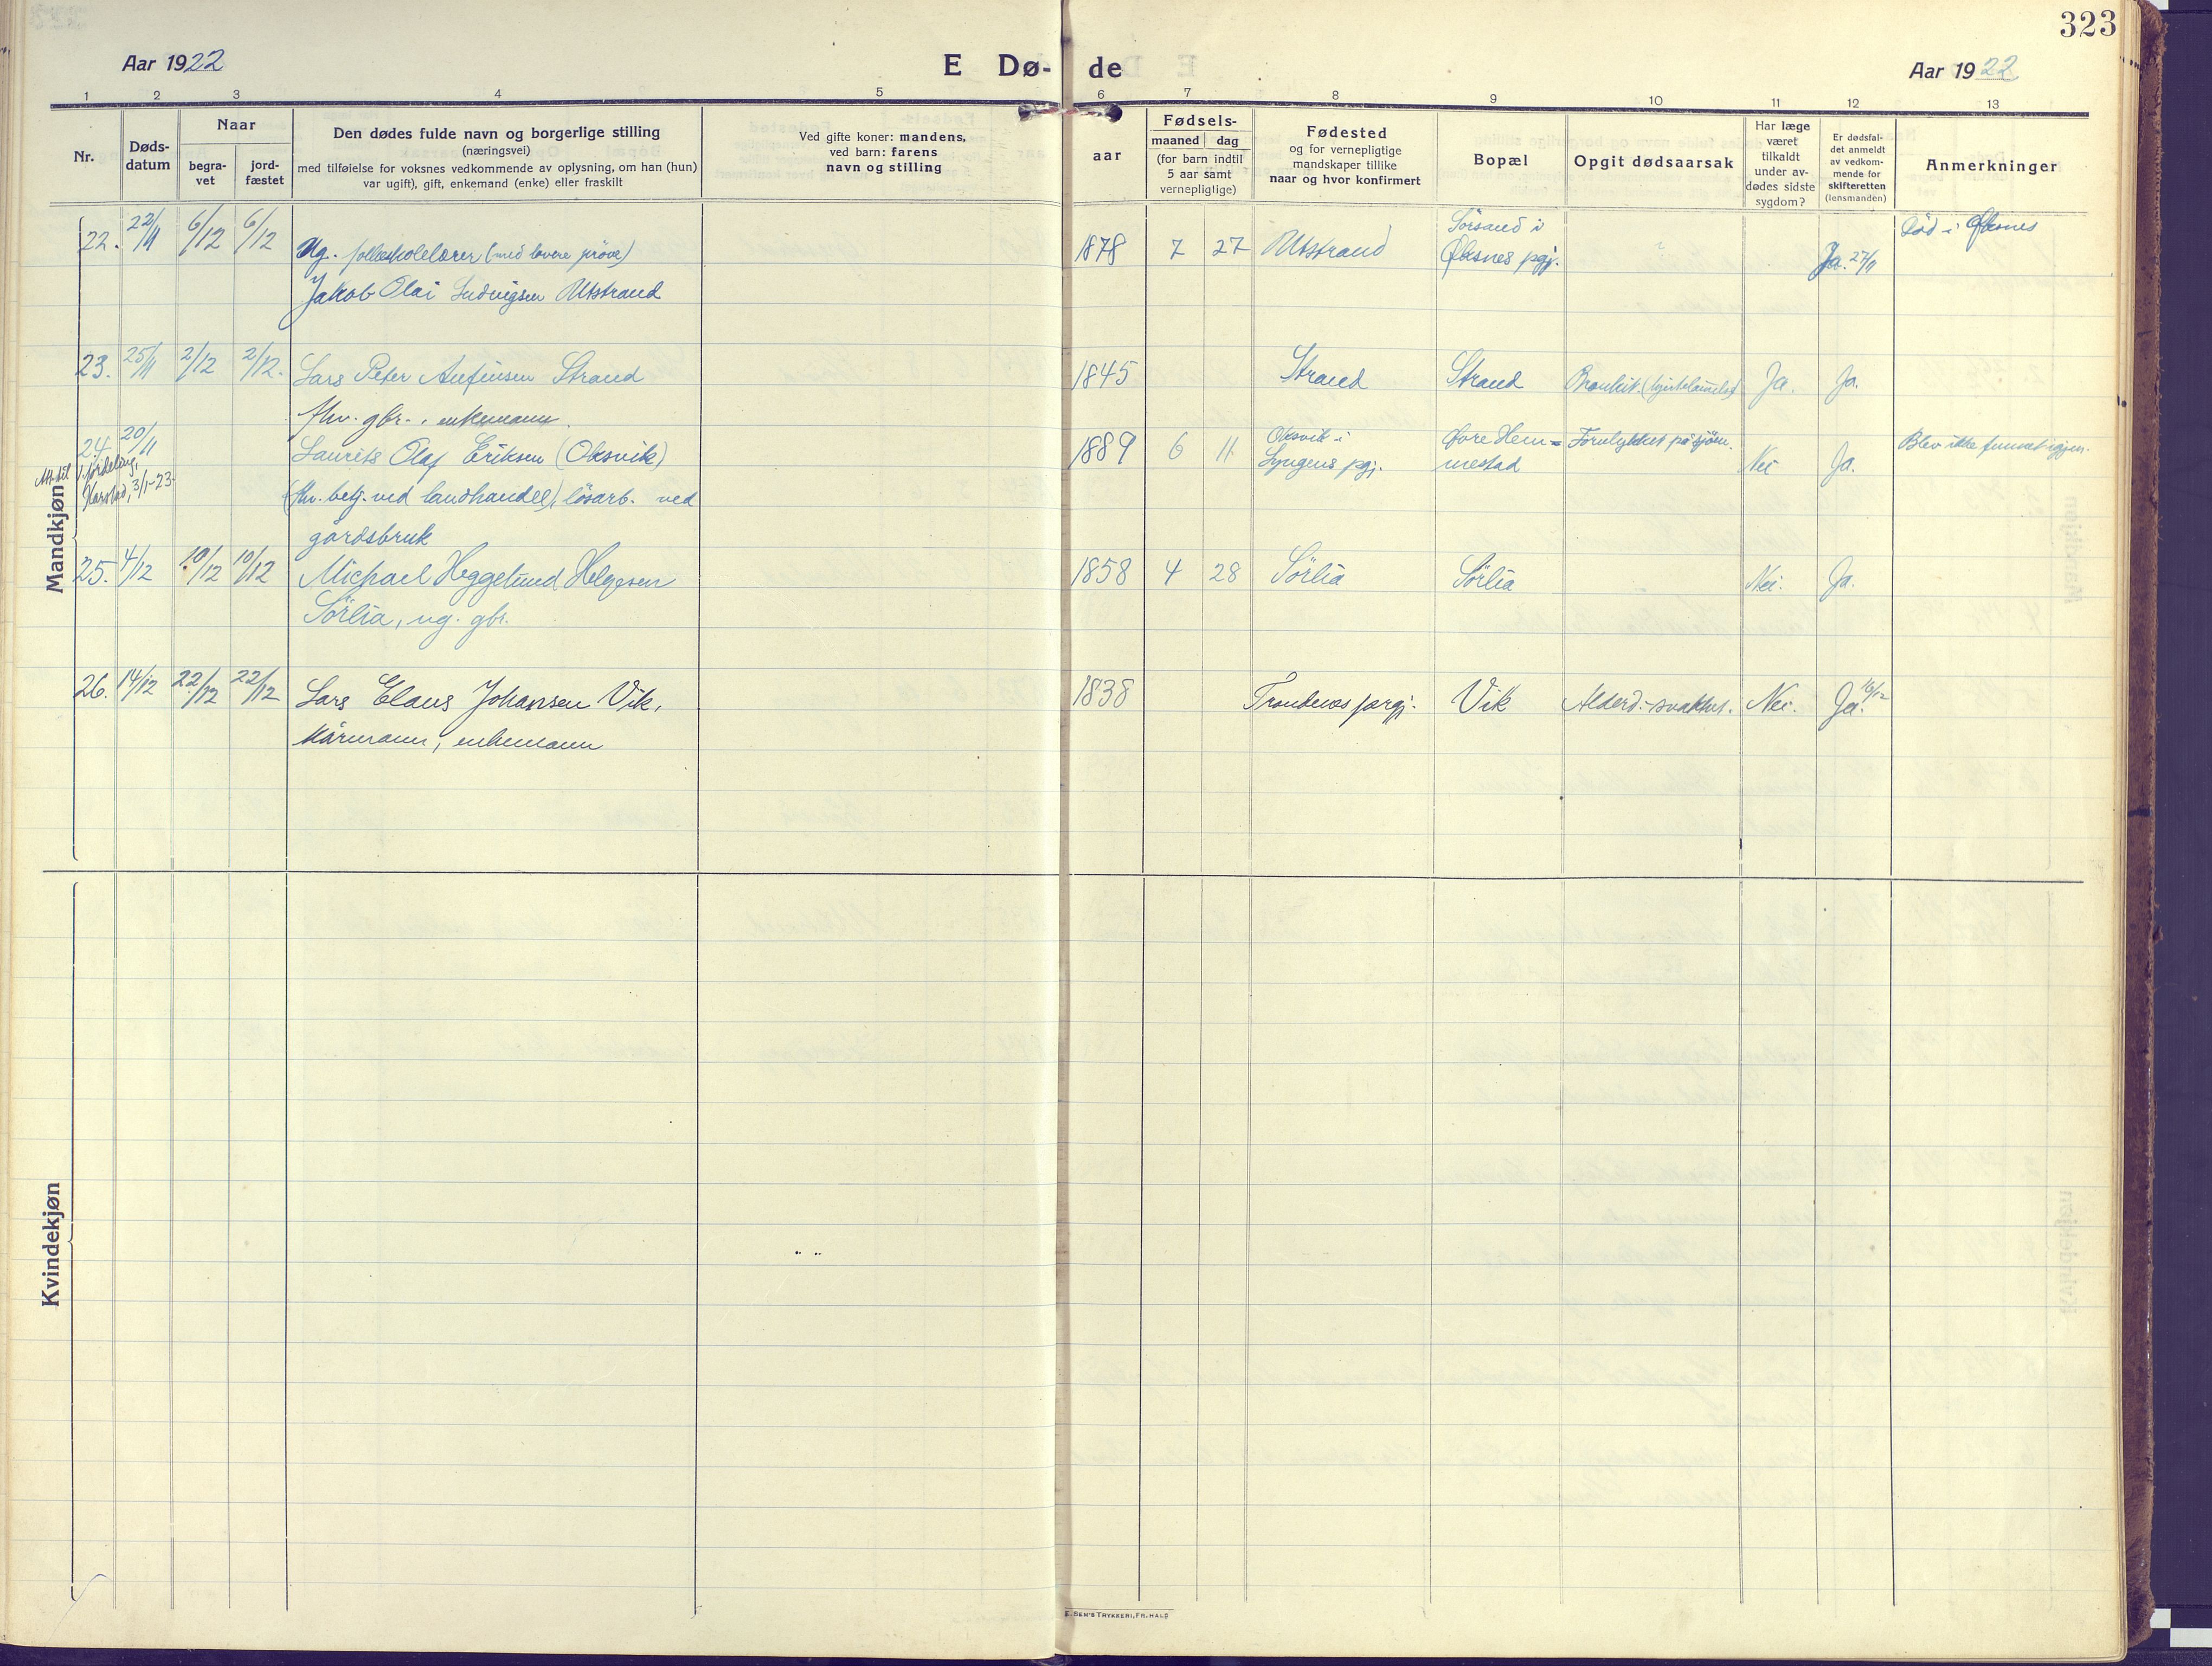 323
Aar 1922
E Dø-
de
Aar 1922
1 2 3 4 5 6 7 8 9 10 11 12 13
Nr.
Døds-
datum
Naar
begra-
vet
jord-
fæstet
Den dødes fulde navn og borgerlige stilling
(næringsvei)
med tilføielse for voksnes vedkommende av oplysning, om han (hun)
var ugift), gift, enkemand (enke) eller fraskilt
Ved gifte koner: mandens,
ved barn: farens
navn og stilling
aar
Fødsels-
maaned dag
(for barn indtil
5 aar samt
vernepligtige)
Fødested
og for vernepligtige
mandskaper tillike
naar og hvor konfirmert
Bopæl
Opgit dødsaarsak
Har læge
været
tilkaldt
under av-
dødes sidste
sygdom?
Er dødsfal-
det anmeldt
av vedkom-
mende for
skifteretten
(lensmanden)
Anmerkninger
Mandkjøn
22. 22/11 6/12 6/12 Ug. folkeskolelærer (med lavere prøve)
Jakob Olai Ludvigsen Utstrand
1878 7 27 Utstrand
Sørsand i
Øksnes pgj.
Ja. 27/11
Død i Øksnes
23. 25/11 2/12 2/12. Lars Peter Anfinsen Strand
fhv. gbr., enkemann.
1845 Strand Strand Bronkit. Ja. Ja.
24 20/11 Laurits Olaf Eriksen (Oksvik)
(fhv. betj. ved landhandel), løsarb. ved
gårdsbruk
3/1-23.
1889 6 11.
Oksvik i
Lyngens pgj.
Øvre Hem-
mestad
Forulykket på sjøen.
Nei Ja.
Blev ikke funnet igjen.
25. 4/12 10/12 10/12 Michael Heggelund Helgesen
Sörlia, ug. gbr.
1858 4 28 Sörlia Sörlia Nei. Ja.
26. 14/12 22/12 22/12 Lars Elaus Johansen Vik,
kårmann, enkemann
1838 Trondenes prgj. Vik Alderd.-svakhet. Nei. Ja. 16/12
Kvindekjøn
E. SEM'S TRYKKERI, FR.HALD